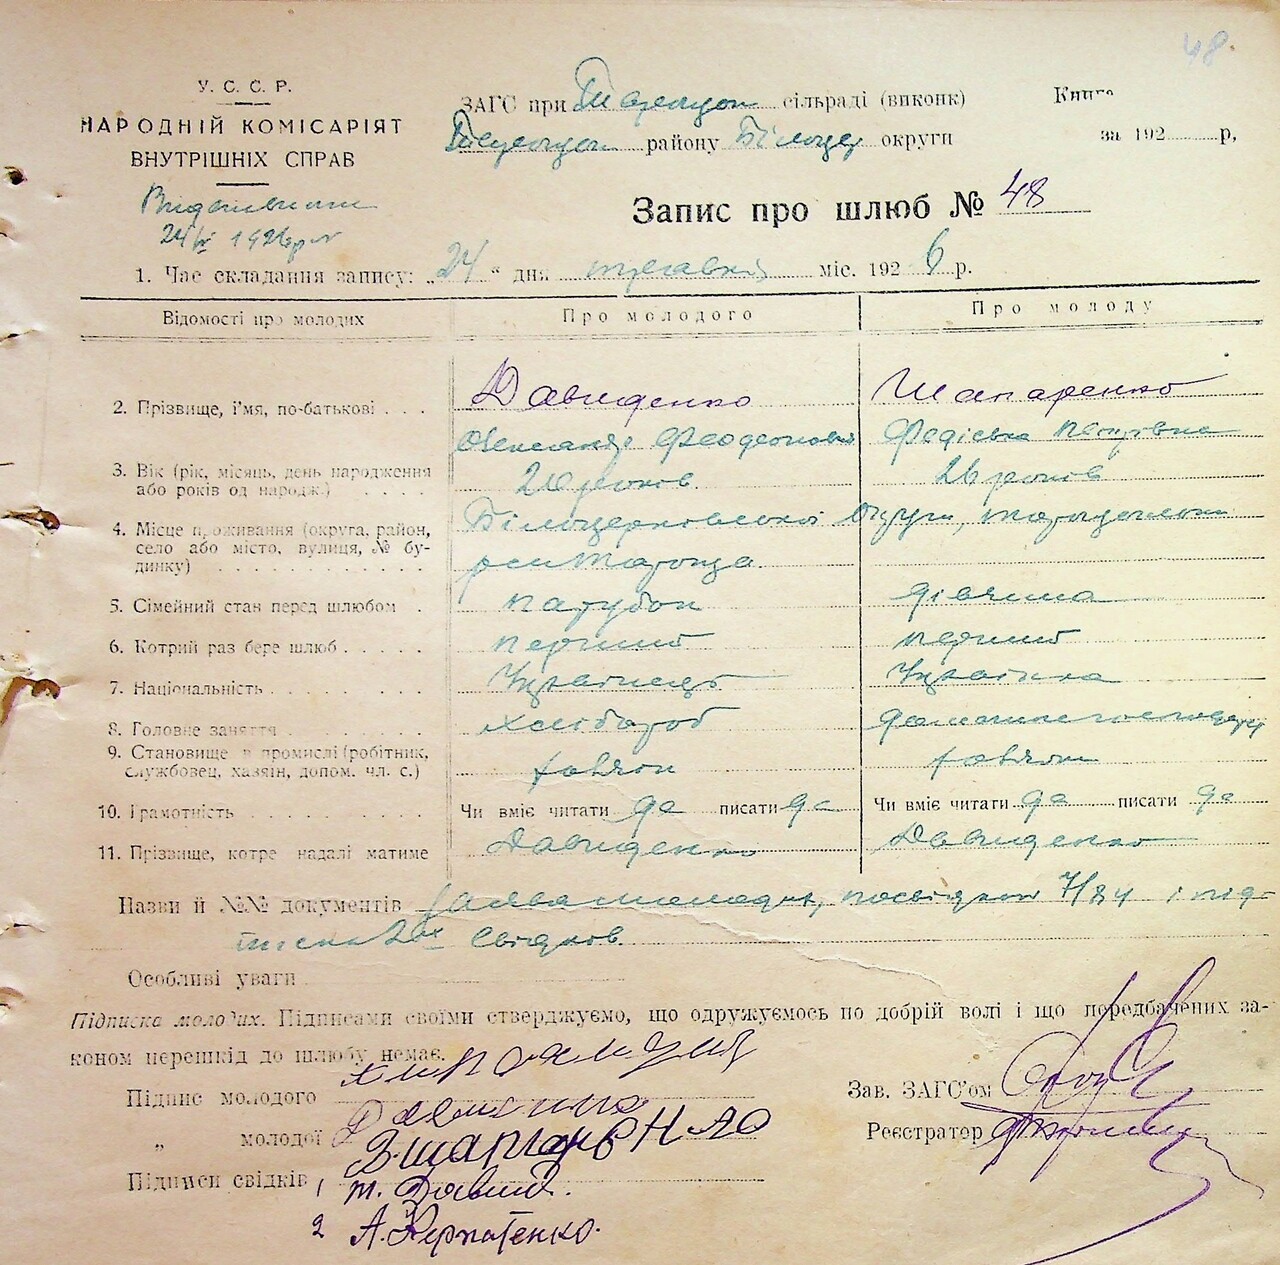 48.
У. С. С. Р.
НАРОДНІЙ КОМІСАРІЯТ
ВНУТРІШНІХ СПРАВ
ЗАГС при сільраді (виконк)
району Білоцер округи
Книга
за 192 р,
24 1926 р
Запис про шлюб № 48
1. Час складання запису: „24 “ дня травня міс. 1926 р.
Відомості про молодих
Про молодого
Про молоду
2. Прізвище, і'мя, по-батькові . . .
Давиденко
Шапаренко
Олександр Феодосиевич
Федіська Петрівна
3. Вік (рік, місяць, день народження
або років од народж.) . . . .
20 років
26 років
4. Місце проживання (округа, район,
село або місто, вулиця, № бу-
динку) . . . . . . . . . . . .
Білоцерковської Округи,
5. Сімейний стан перед шлюбом .
парубок
дівчина
6. Котрий раз бере шлюб . . . . .
перший
перший
7. Національність . . . . . . . . .
Українець
Українка
8. Головне заняття . . . . . . . .
хлібороб
9. Становище в промислі (робітник,
службовец, хазяїн, допом. чл. с.)
10. Грамотність . . . . . . . . . .
Чи вміє читати да писати да
Чи вміє читати да писати да
11. Прізвище, котре надалі матиме
Давиденко
Давиденко
Назви й №№ документів молодих, посвідкой 7/84 і під-
писка 2ох свідков.
Особливі уваги
Підписка молодих. Підписами своїми стверджуємо, що одружуємось по добрій волі і що передбачених за-
коном перешкід до шлюбу немає.
Підпис молодого
„ молодої
Зав. ЗАГС'ом
Реєстратор
Підписи свідків 1 Т. Давид.
2 А.